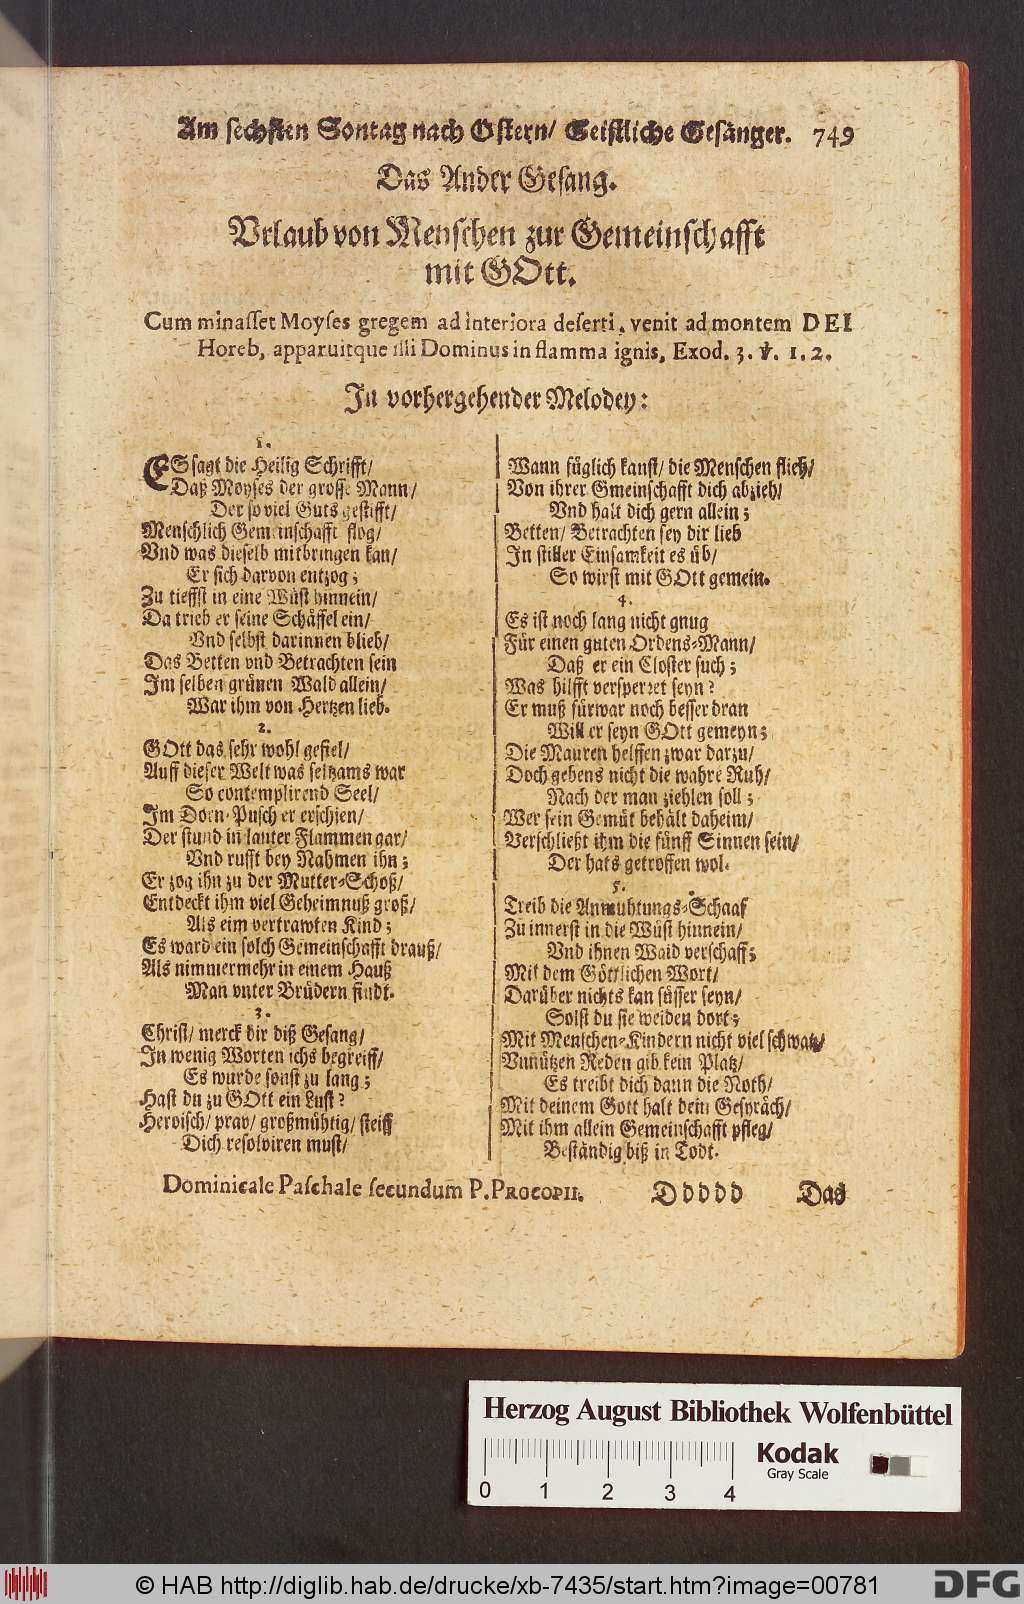 Am sechsten Sontag nach Ostern/ Geistliche Gesänger. 749
Das Ander Gesang.
Vrlaub von Menschen zur Gemeinschafft
mit GOtt.
Cum minasset Moyses gregem ad interiora deserti, venit ad montem DEI
Horeb, apparuitque illi Dominus in flamma ignis, Exod. 3. v. 1. 2.
In vorhergehender Melodey:
1.
ES sagt die Heilig Schrifft/
Daß Moyses der grosse Mann/
Der so viel Guts gestifft/
Menschlich Gemeinschafft flog/
Vnd was dieselb mitbringen kan/
Er sich darvon entzog;
Zu tieffst in eine Wüst hinnein/
Da trieb er seine Schäffel ein/
Vnd selbst darinnen blieb/
Das Betten vnd Betrachten sein
Im selben grünen Wald allein/
War ihm von Hertzen lieb.
2.
GOtt das sehr wohl gefiel/
Auff dieser Welt was seltzams war
So contemplirend Seel/
Im Dorn-Pusch er erschien/
Der stund in lauter Flammen gar/
Vnd rufft bey Nahmen ihn;
Er zog ihn zu der Mutter-Schoß/
Entdeckt ihm viel Geheimnuß groß/
Als eim vertrawten Kind;
Es ward ein solch Gemeinschafft drauß/
Als nimmermehr in einem Hauß
Man vnter Brüdern findt.
3.
Christ/ merck dir diß Gesang/
In wenig Worten ichs begreiff/
Es wurde sonst zu lang;
Hast du zu GOtt ein Lust?
Heroisch/ prav/ großmühtig/ steiff
Dich resolviren must/
Wann füglich kanst/ die Menschen flieh/
Von ihrer Gmeinschafft dich abzieh/
Vnd halt dich gern allein;
Betten/ Betrachten sey dir lieb
In stiller Einsamkeit es üb/
So wirst mit GOtt gemein.
4.
Es ist noch lang nicht gnug
Für einen guten Ordens-Mann/
Daß er ein Closter such;
Was hilfft versperret seyn?
Er muß fürwar noch besser dran
Will er seyn GOtt gemeyn;
Die Mauren helffen zwar darzu/
Doch gebens nicht die wahre Ruh/
Nach der man ziehlen soll;
Wer sein Gemüt behält daheim/
Verschließt ihm die fünff Sinnen sein/
Der hats getroffen wol.
5.
Treib die Anmuhtungs-Schaaf
Zu innerst in die Wüst hinnein/
Vnd ihnen Waid verschaff;
Mit dem Göttlichen Wort/
Darüber nichts kan süsser seyn/
Solst du sie weiden dort;
Mit Menschen-Kindern nicht viel schwatz/
Vnnützen Reden gib kein Platz/
Es treibt dich dann die Noth/
Mit deinem Gott halt dein Gespräch/
Mit ihm allein Gemeinschafft pfleg/
Beständig biß in Todt.
Dominicale Paschale secundum P. PROCOPII. Ddddd Das
Herzog August Bibliothek Wolfenbüttel
Kodak
Gray Scale
0 1 2 3 4
© HAB http://diglib.hab.de/drucke/xb-7435/start.htm?image=00781
DFG